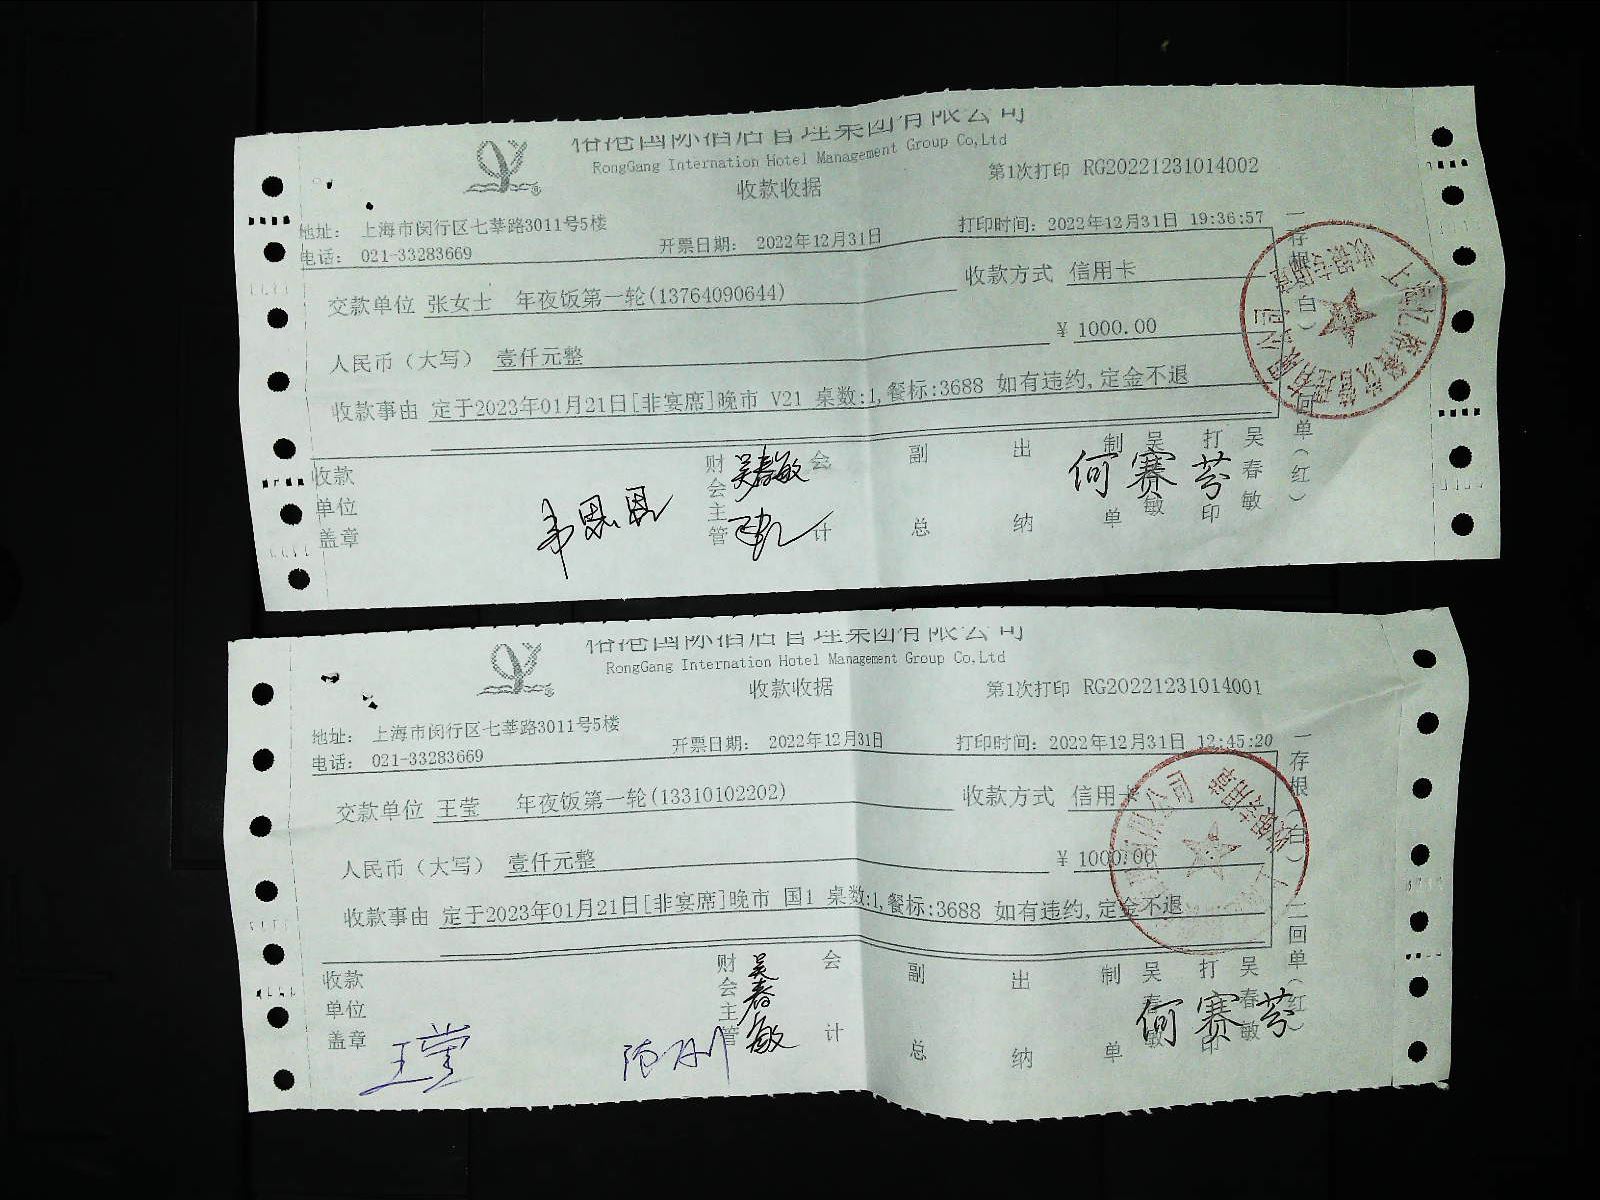 国际酒店管理集团有限公司
RongGang Internation Hotel Management Group Co,Ltd
收款收据
第1次打印 RG20221231014002
地址: 上海市闵行区七莘路3011号5楼
电话: 021-33283669
开票日期: 2022年12月31日
打印时间: 2022年12月31日 19:36:57
交款单位 张女士 年夜饭第一轮(13764090644)
收款方式 信用卡
人民币(大写) 壹仟元整
¥ 1000.00
收款事由 定于2023年01月21日[非宴席]晚市 V21 桌数:1,餐标:3688 如有违约,定金不退
收款单位盖章
财会主管
吴春敏
会计
副总
出纳
制单 吴春敏
打印 吴春敏
何赛芬
一存根(白)
二回单(红)
国际酒店管理集团有限公司
RongGang Internation Hotel Management Group Co,Ltd
收款收据
第1次打印 RG20221231014001
地址: 上海市闵行区七莘路3011号5楼
电话: 021-33283669
开票日期: 2022年12月31日
打印时间: 2022年12月31日 12:45:20
交款单位 王莹 年夜饭第一轮(13310102202)
收款方式 信用卡
人民币(大写) 壹仟元整
¥ 1000.00
收款事由 定于2023年01月21日[非宴席]晚市 国1 桌数:1,餐标:3688 如有违约,定金不退
收款单位盖章
王莹
财会主管
吴春敏
会计
副总
出纳
制单 吴春敏
打印 吴春敏
何赛芬
一存根(白)
二回单(红)